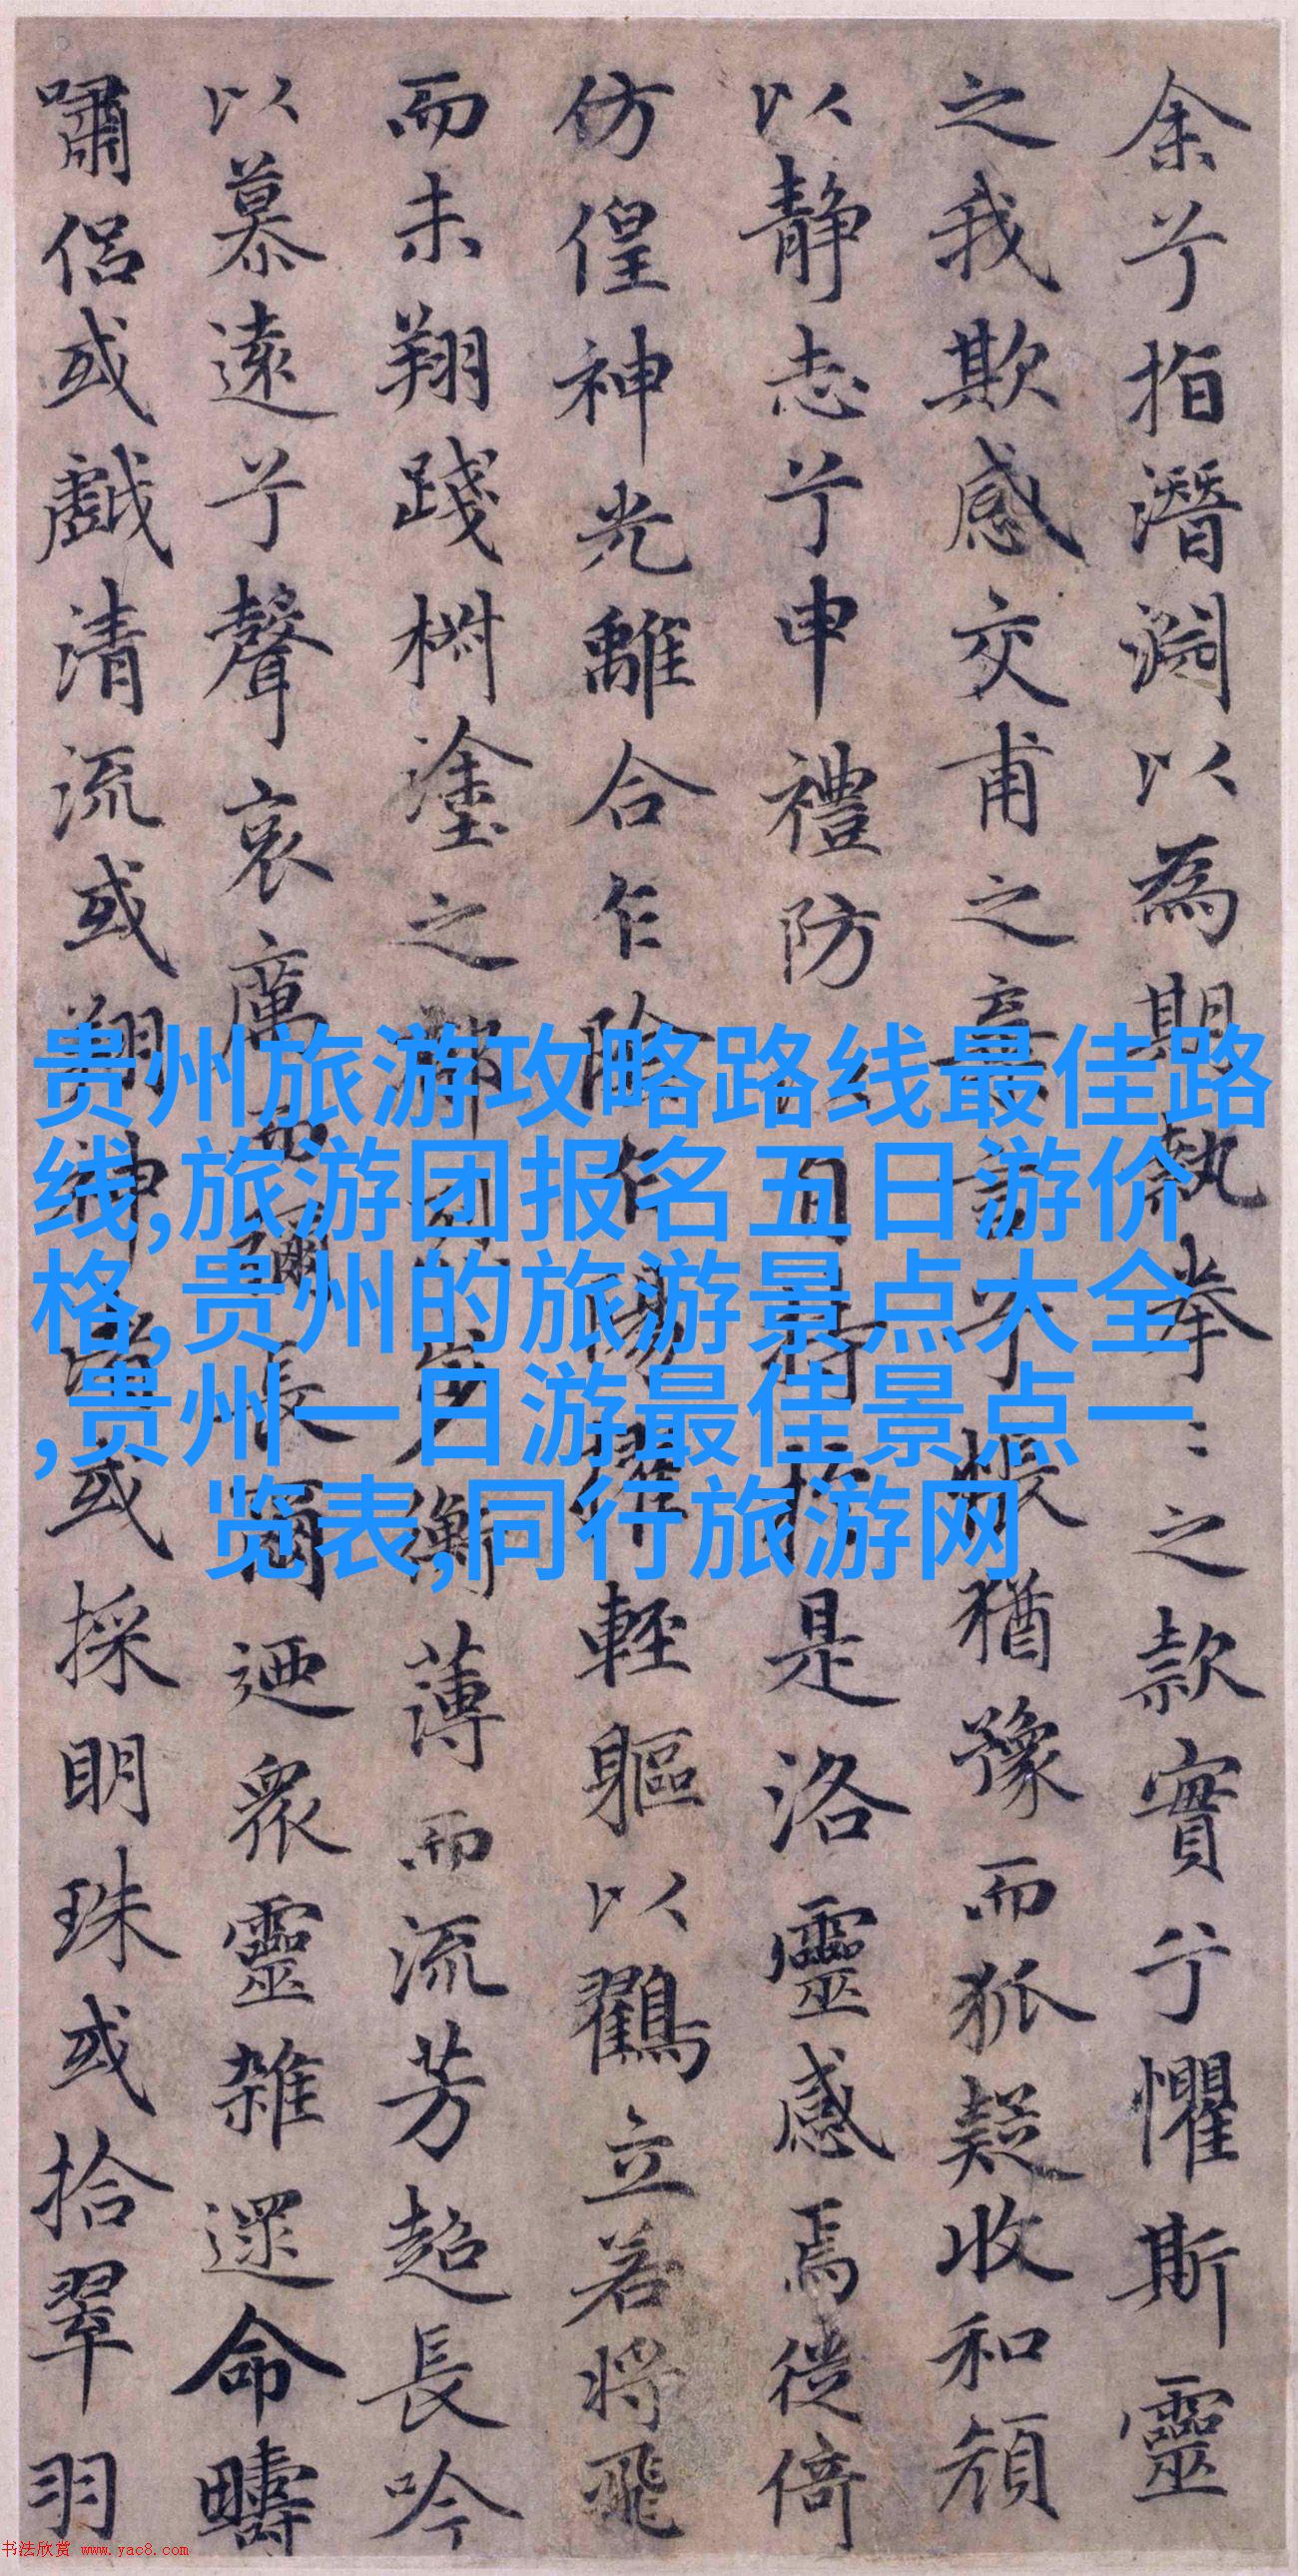 余兮指潛淵以為期執拳〻之款實兮懼斯靈
之我欺感交甫之棄言兮悵猶豫而狐疑收和顏
以靜志兮申禮防以自持於是洛靈感焉徙倚
仿偟神光離合乍陰乍陽擢輕軀以鶴立若將飛
而未翔踐椒塗之郁烈步衡薄而流芳超長吟
以慕遠兮聲哀厲而彌長爾迺眾靈雜遝命疇
嘯侶或戲清流或翔神渚或採明珠或拾翠羽
贵州旅游攻略路线最佳路
线,旅游团报名五日游价
格,贵州的旅游景点大全
,贵州一日游最佳景点一
览表,同行旅游网
书法欣赏 www.yac8.com